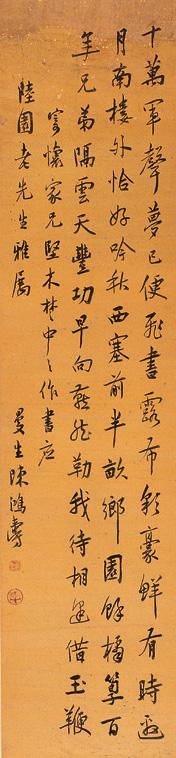 十萬軍聲夢已便飛書露布彩豪鮮有時邀
月南樓外恰好吟秋西塞前半畝鄉園餘橘算百
年兄弟隔雲天豐功早向燕然勒我待相逢借玉鞭
寄懷家兄堅木楚中之作書應
陸園老先生雅屬
曼生陳鴻壽